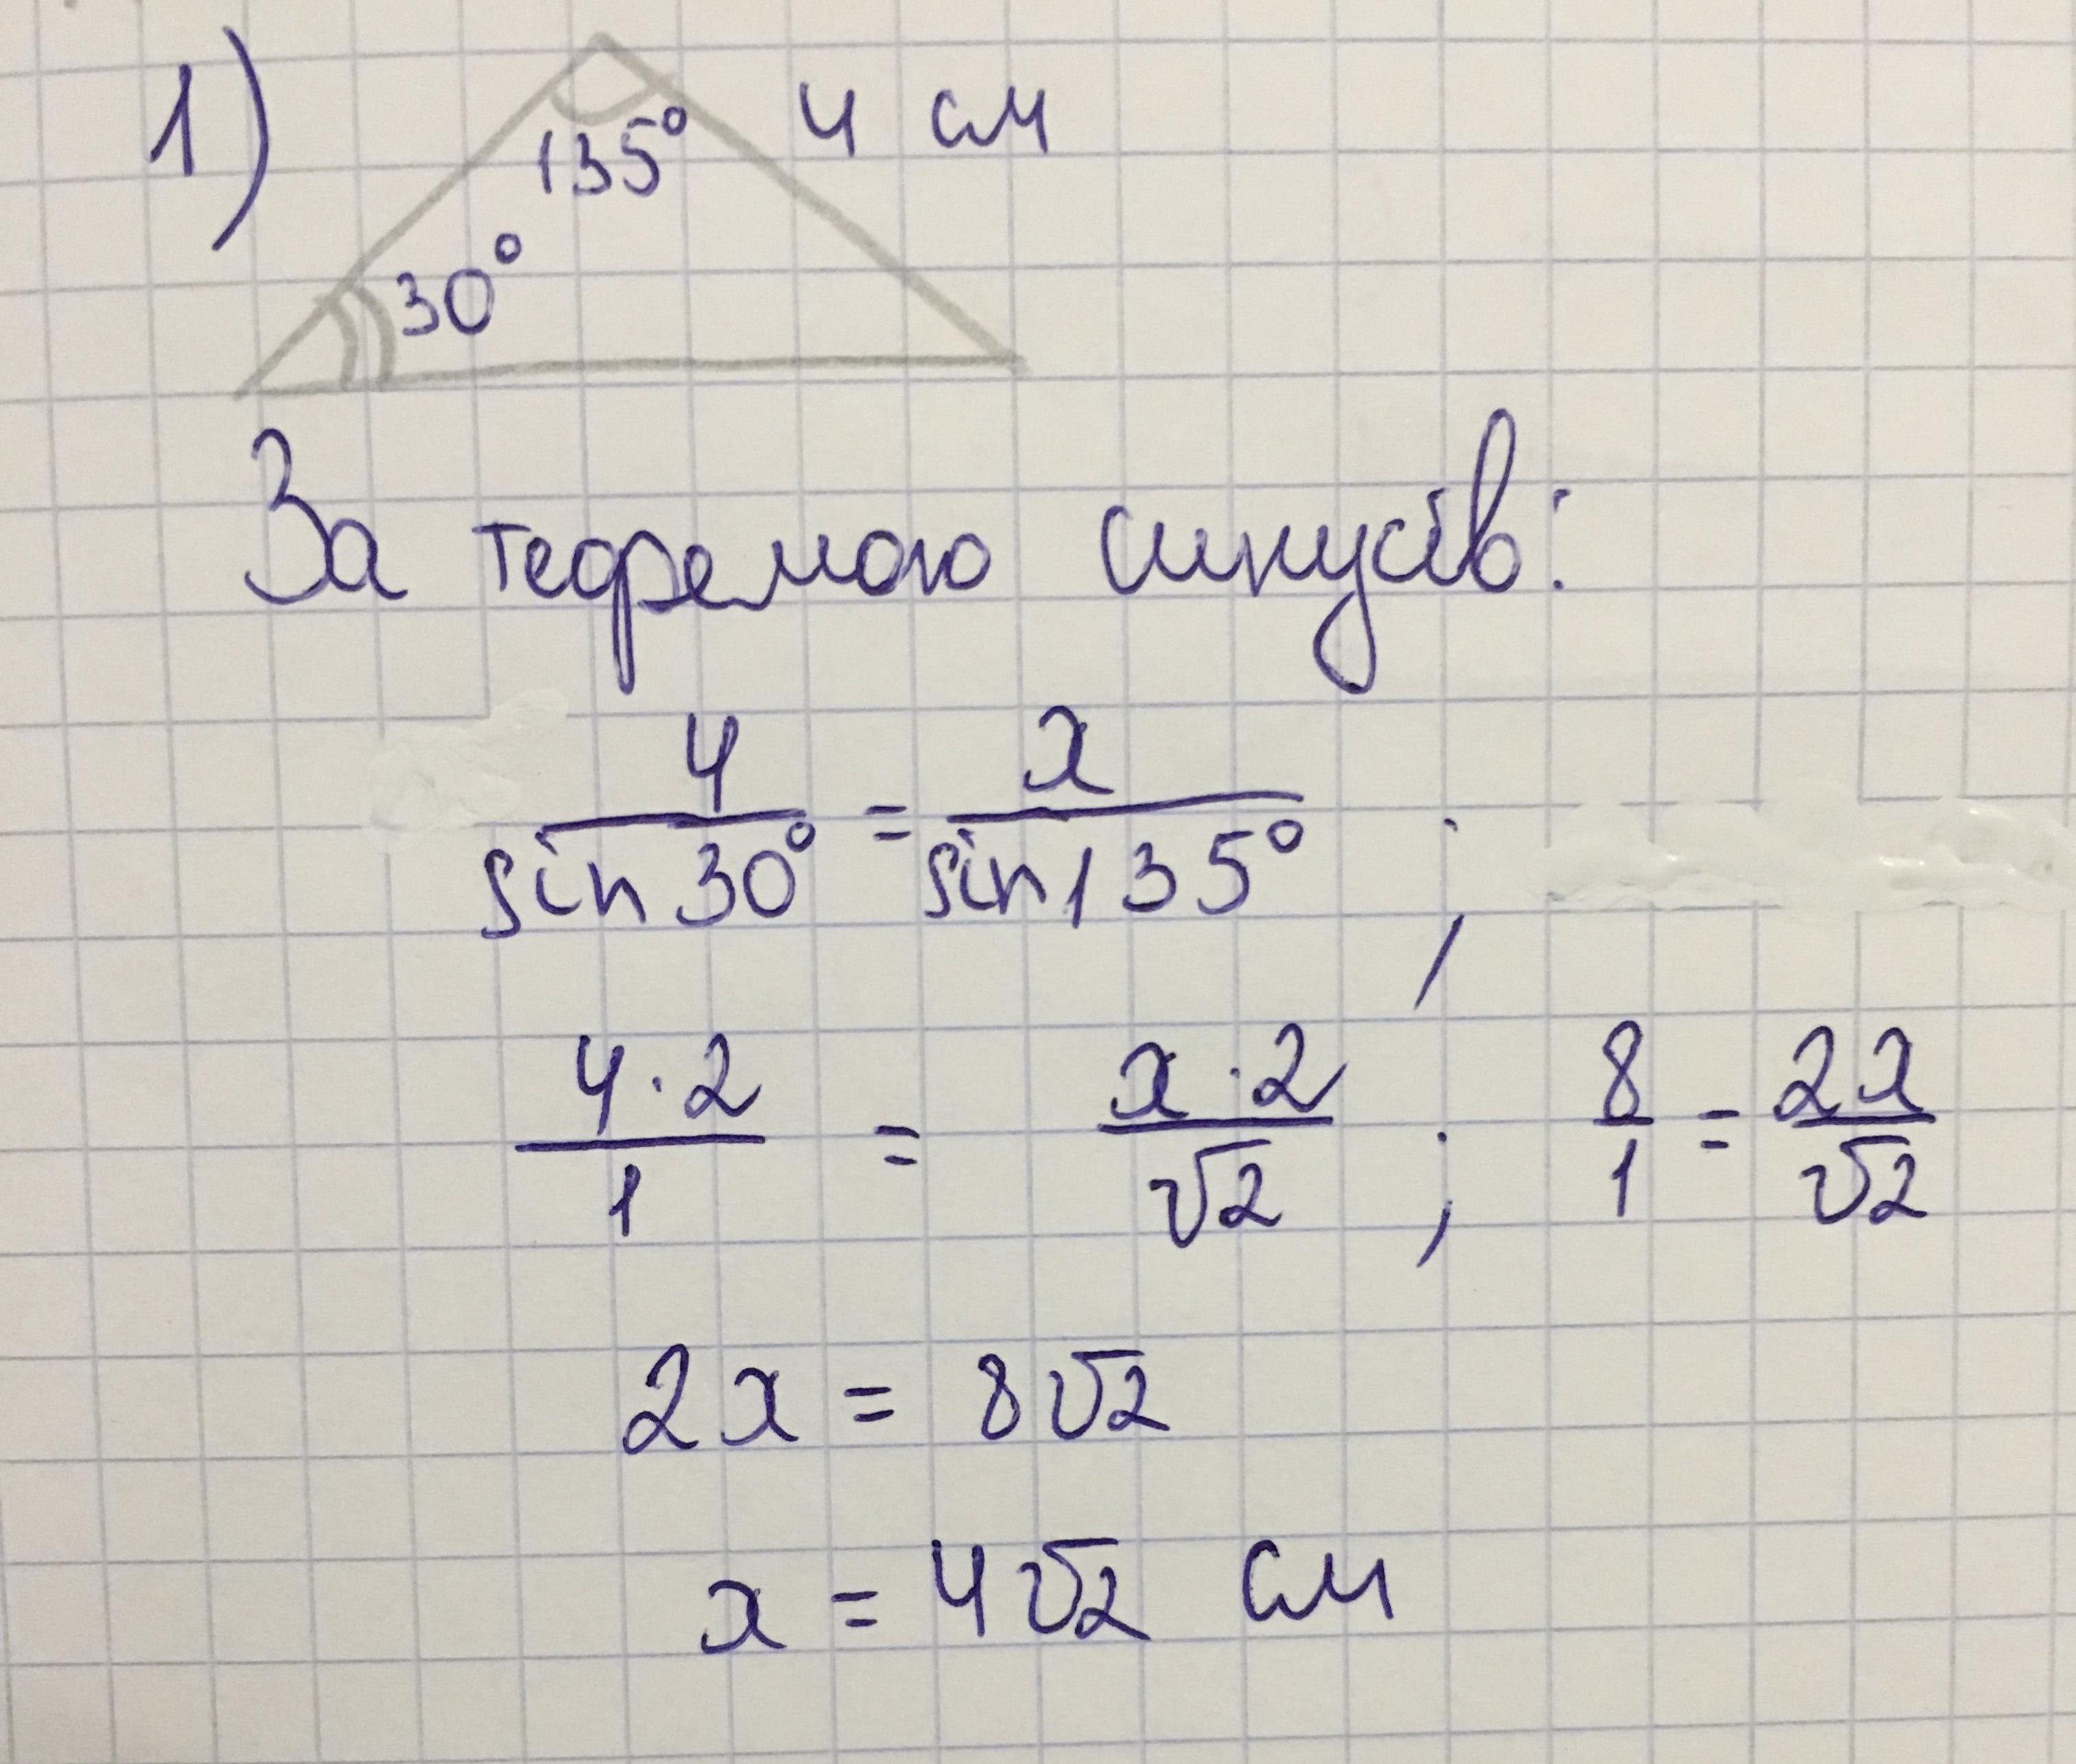 1) 135° 4 см
30°
За теоремою синусів:
4/sin 30° = x/sin 135° ;
4·2/1 = x·2/√2 ; 8/1 = 2x/√2
2x = 8√2
x = 4√2 см